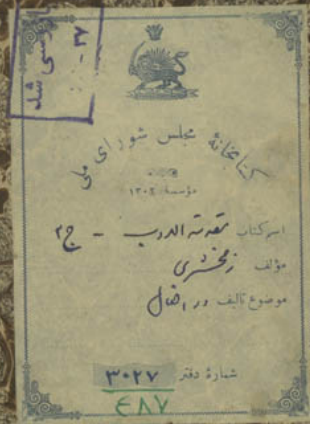 بازرسی شد
۳۷ -
کتابخانهٔ مجلس شورای ملی
مؤسسهٔ ۱۳۰۲
اسم کتاب مقدمة الادب - ج ۲
مؤلف زمخشری
موضوع تالیف در افعال
شمارهٔ دفتر ۳۰۲۷
۴۸۷